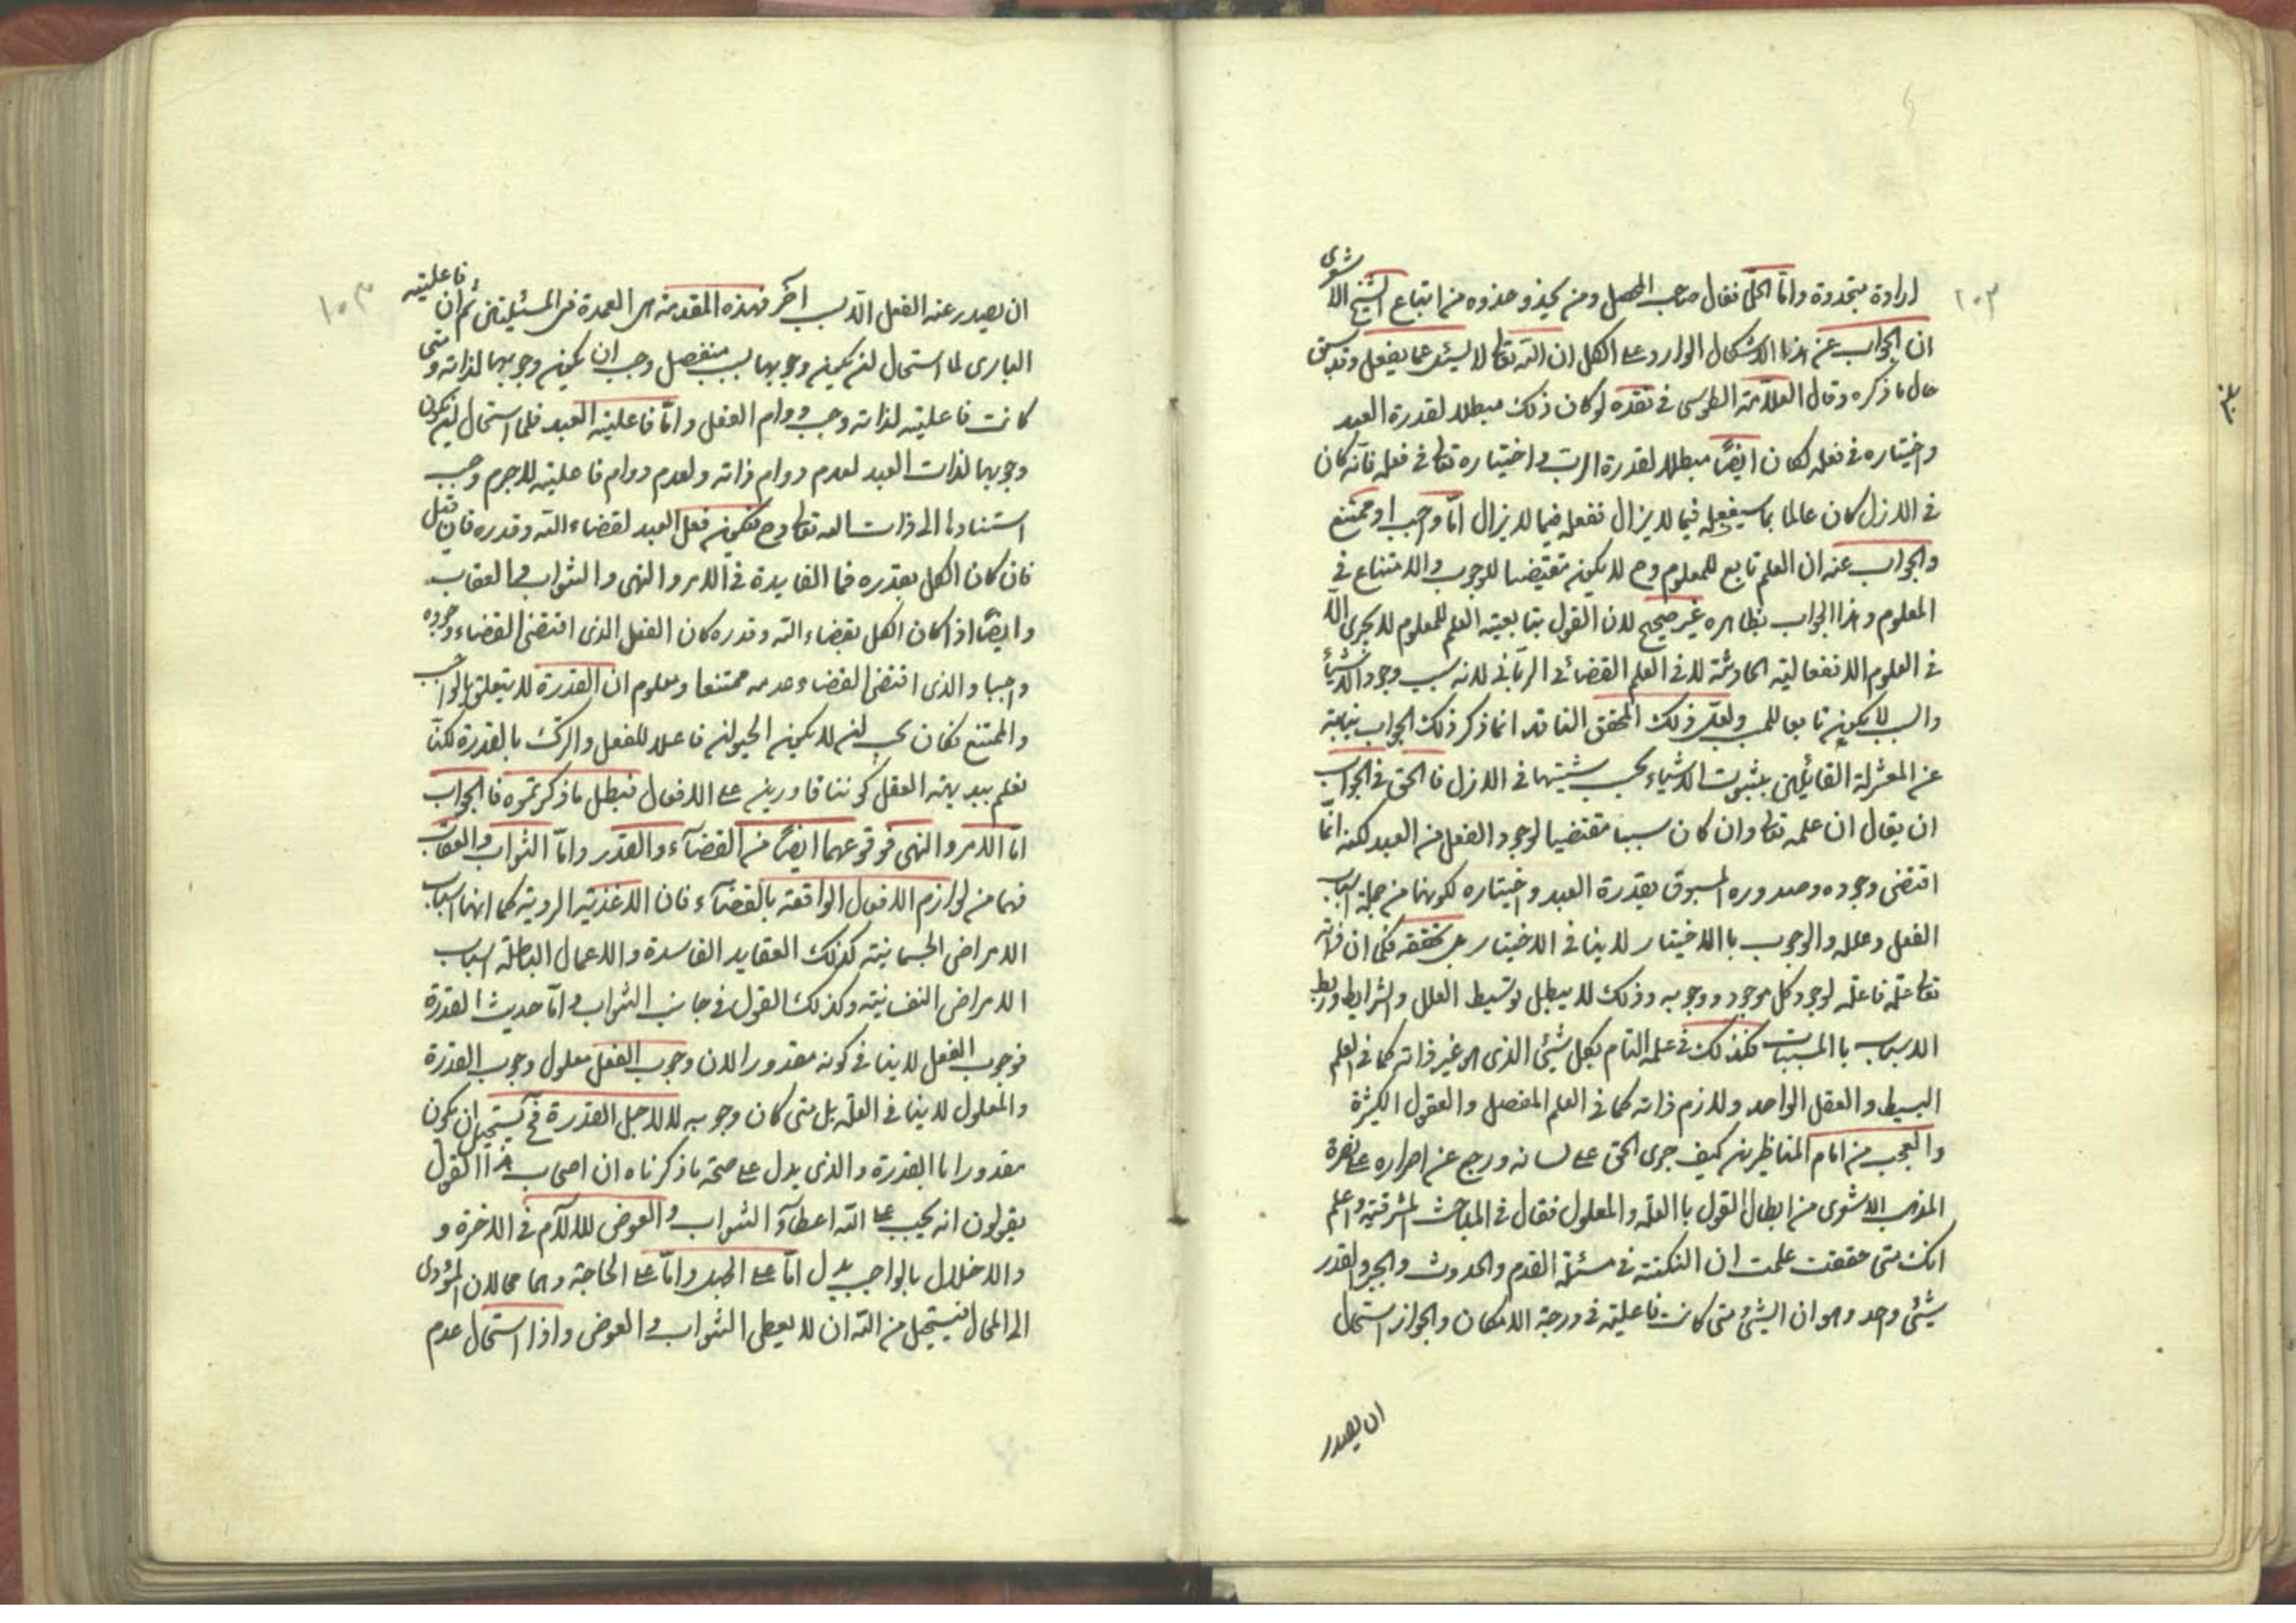 ١٠٢
ارادة متجددة واما الحل فقال صاحب المحصل ومن يحذو حذوه من اتباع الشيخ الاشعرى
ان الجواب عن هذا الاشكال الوارد على الكل ان الله تعالى لا يسئل عما يفعل وقد سبق
حال ما ذكره وقال العلامة الطوسى فى نقده لو كان ذلك مبطلا لقدرة العبد
واختياره فى فعله لكان ايضًا مبطلا لقدرة الرب واختياره تعالى فى فعله فانه كان
فى الازل كان عالما بما سيفعله فيما لا يزال ففعله فيما لا يزال اما واجب او ممتنع
والجواب عنه ان العلم تابع للمعلوم وح لا يكون مقتضيا للوجوب والامتناع فى
المعلوم وهذا الجواب بظاهره غير صحيح لان القول بتابعية العلم للمعلوم لا يجرى الا
فى العلوم الانفعالية الحادثة لا فى العلم القضائى الربانى لانه سبب وجود الاشياء
والسبب لا يكون تابعا للمسبب ولعل ذلك المحقق الناقد انما ذكر ذلك الجواب نيابة
عن المعتزلة القائلين بثبوت الاشياء بحسب شيئيتها فى الازل فالحق فى الجواب
ان يقال ان علمه تعالى وان كان سببا مقتضيا لوجود الفعل من العبد لكنه انما
اقتضى وجوده وصدوره المسبوق بقدرة العبد واختياره لكونهما من جملة اسباب
الفعل وعلله والوجوب باالاختيار لا ينافى الاختيار بل يحققه فكما ان ذاته
تعالى علة فاعلة لوجود كل موجود ووجوبه وذلك لا يبطل توسيط العلل والشرايط وربط
الاسباب باالمسببات فكذلك فى علمه التام بكل شيئ الذى هو غير ذاته كما فى العلم
البسيط والعقل الواحد ولازم ذاته كما فى العلم المفصل والعقول الكثيرة
والعجب من امام المناظرين كيف جرى الحق على لسانه ورجع عن اصراره على نصرة
المذهب الاشعرى من ابطال القول باالعلة والمعلول فقال فى المباحث المشرقية واعلم
انك متى حققت علمت ان النكتة فى مسئلة القدم والحدوث والجبر والقدر
شيئ واحد وهو ان الشيئ متى كانت فاعليته فى درجة الامكان والجواز استحال
ان يصدر
١٠٣
ان يصدر عنه الفعل الا بسبب آخر فهذه المقدمة هى العمدة فى المسئلتين ثم ان فاعلية
البارى لما استحال لن يكون وجوبها بسبب منفصل وجب ان يكون وجوبها لذاته ومتى
كانت فاعليته لذاته وجب دوام الفعل واما فاعلية العبد فلما استحال لن يكون
وجوبها لذات العبد لعدم دوام ذاته ولعدم دوام فاعليته لا جرم وجب
استنادها الى ذات الله تعالى وح فيكون فعل العبد لقضاء الله وقدره فان قيل
فان كان الكل بقدره فما الفايدة فى الامر والنهى والثواب والعقاب
وايضًا اذا كان الكل بقضاء الله وقدره كان الفعل الذى اقتضى القضاء وجوده
واجبا والذى اقتضى القضاء عدمه ممتنعا ومعلوم ان القدرة لا يتعلق بالواجب
والممتنع فكان يجب لن لا يكون الحيوان فاعلا للفعل والترك بالقدرة لكنا
نعلم ببديهة العقل كوننا قادرين على الافعال فبطل ما ذكرتموه فالجواب
اما الامر والنهى فوقوعهما ايضًا من القضاء والقدر واما الثواب والعقاب
فهما من لوازم الافعال الواقعة بالقضاء فان الاغذية الردية كما انها اسباب
الامراض الجسمانية كذلك العقايد الفاسدة والاعمال الباطلة اسباب
الامراض النفسانية وكذلك القول فى جانب الثواب واما حديث القدرة
فوجوب الفعل لا ينافى كونه مقدورا لان وجوب الفعل معلول وجوب القدرة
والمعلول لا ينافى العلة بل متى كان وجوبه لا لاجل القدرة فح يستحيل ان يكون
مقدورا باالقدرة والذى يدل على صحة ما ذكرناه ان اصحاب هذا القول
يقولون انه يجب على الله اعطاء الثواب والعوض للالآم فى الاخرة و
والاخلال بالواجب يدل اما على الجهل واما على الحاجة وهما محالان المؤدى
الى المحال فيستحيل من الله ان لا يعطى الثواب والعوض واذا استحال عدم